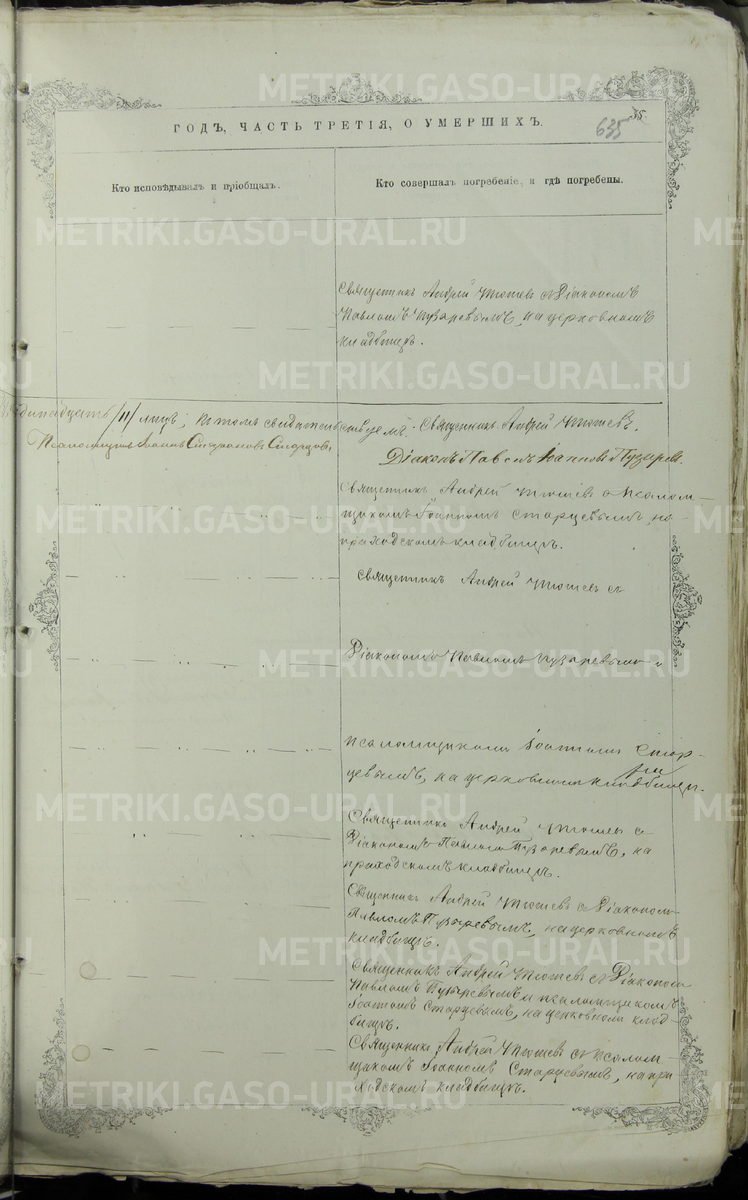 ГОДЪ, ЧАСТЬ ТРЕТІЯ, О УМЕРШИХЪ.
635
35.
Кто исповѣдывалъ и пріобщалъ.
Кто совершалъ погребеніе, и гдѣ погребены.
Священникъ Андрей с Діакономъ
Павломъ Пузыревымъ, на церковномъ
кладбищѣ.
/11/ лицъ; въ томъ свидѣтельствуемъ: Священникъ Андрей
Псаломщикъ Іоаннъ Стефановъ Старцовъ,
Діаконъ Павелъ Іоанновъ Пузыревъ.
Священникъ Андрей с Псалом-
щикомъ Іоанномъ Старцевымъ, на
приходскомъ кладбищѣ.
Священникъ Андрей съ
Діакономъ Павломъ Пузыревымъ и
псаломщикомъ Іоанномъ Стар-
цевымъ, на церковномъ кладбищѣ.
Священникъ Андрей с
Діакономъ Павломъ Пузыревымъ, на
приходскомъ кладбищѣ.
Священникъ Андрей с Діакономъ
Павломъ Пузыревымъ, на церковномъ
кладбищѣ.
Священникъ Андрей с Діакономъ
Павломъ Пузыревымъ и псаломщикомъ
Іоанномъ Старцевымъ, на церковном клад-
бищѣ.
Священникъ Андрей съ Псалом-
щикомъ Іоанномъ Старцевымъ, на при
ходскомъ кладбищѣ.
METRIKI.GASO-URAL.RU